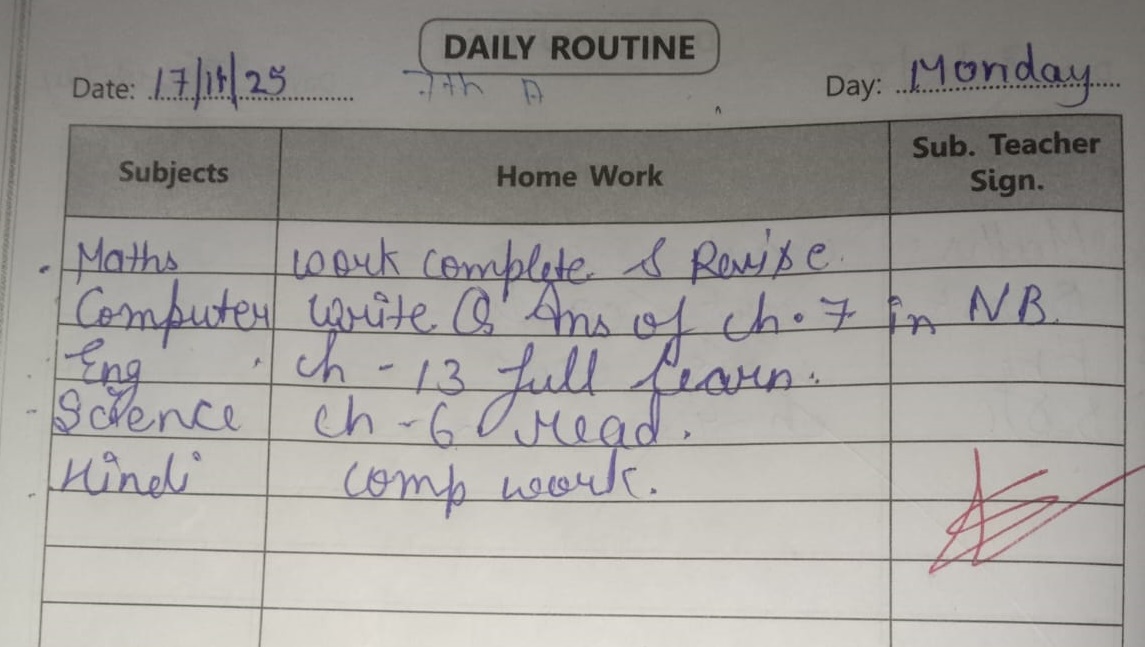 DAILY ROUTINE
Date: 17/11/25 7th A Day: Monday
Subjects Home Work Sub. Teacher Sign.
Maths work complete & Revise.
Computer write Q Ans of ch. 7 in NB.
Eng ch - 13 full learn.
Science ch - 6 read.
Hindi comp work.